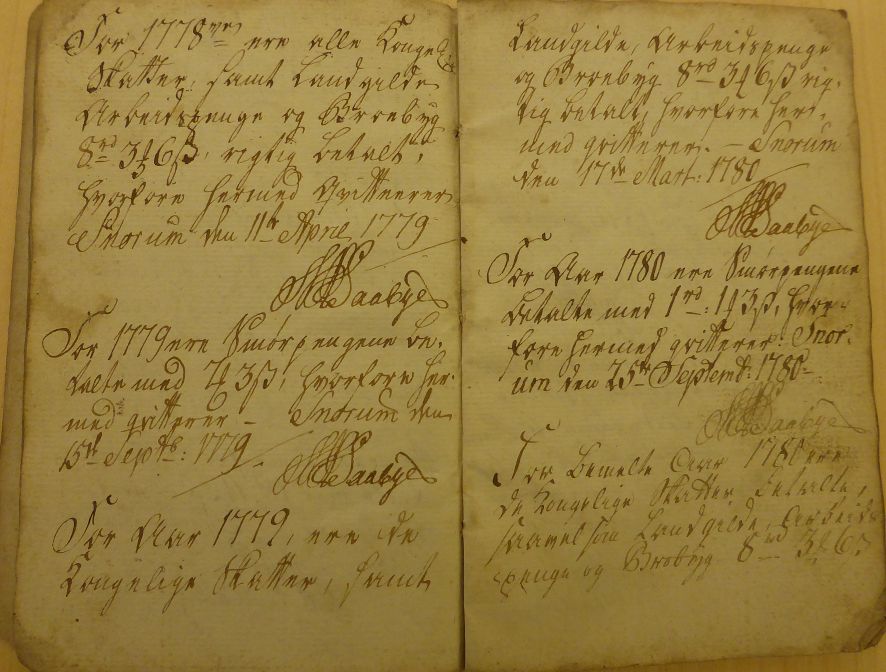 For 1778 ere alle Kongel:
Skatter, samt Landgilde
Arbeidspenge og Broebÿg
8rd 3 6ß, rigtig betalt,
hvorfore hermed qvitterer
Snorum den 11te April 1779
Saabÿe
For 1779 ere Smørpengene be-
talte med 4 3ß, hvorfore her-
med qvitterer – Snorum den
15de Septb: 1779
Saabÿe
For Aar 1779, ere de
Kongelige Skatter, samt
Landgilde, Arbeidspenge
og Broebÿg 8rd 3 6ß rig-
tig betalt, hvorfore her-
med qvitterer. – Snorum
den 17de Mart: 1780
Saabÿe
For Aar 1780 ere Smørpengene
betalte med 1rd: 1 3ß, hvor-
fore hermed qvitterer: Snor-
um den 25te Septemb: 1780
Saabÿe
For bemelte Aar 1780 ere
de Kongelige Skatter betalte,
saavelsom Landgilde, Arbeids
penge og Brobÿg 8rd 3 6ß